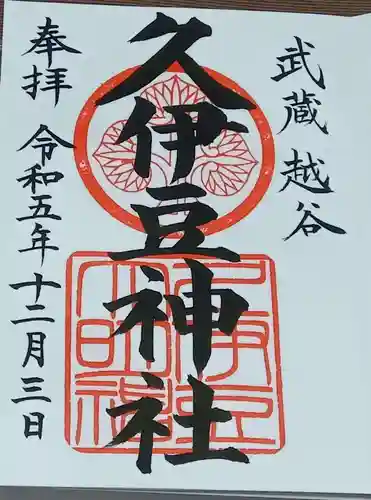 武蔵越谷
久伊豆神社
奉拝
令和五年十二月三日